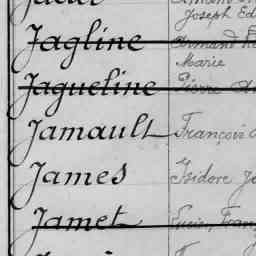 Joseph Ed
Jagline Armand
Marie
Jaqueline Pierre
Jamault François
James Isidore
Jamet